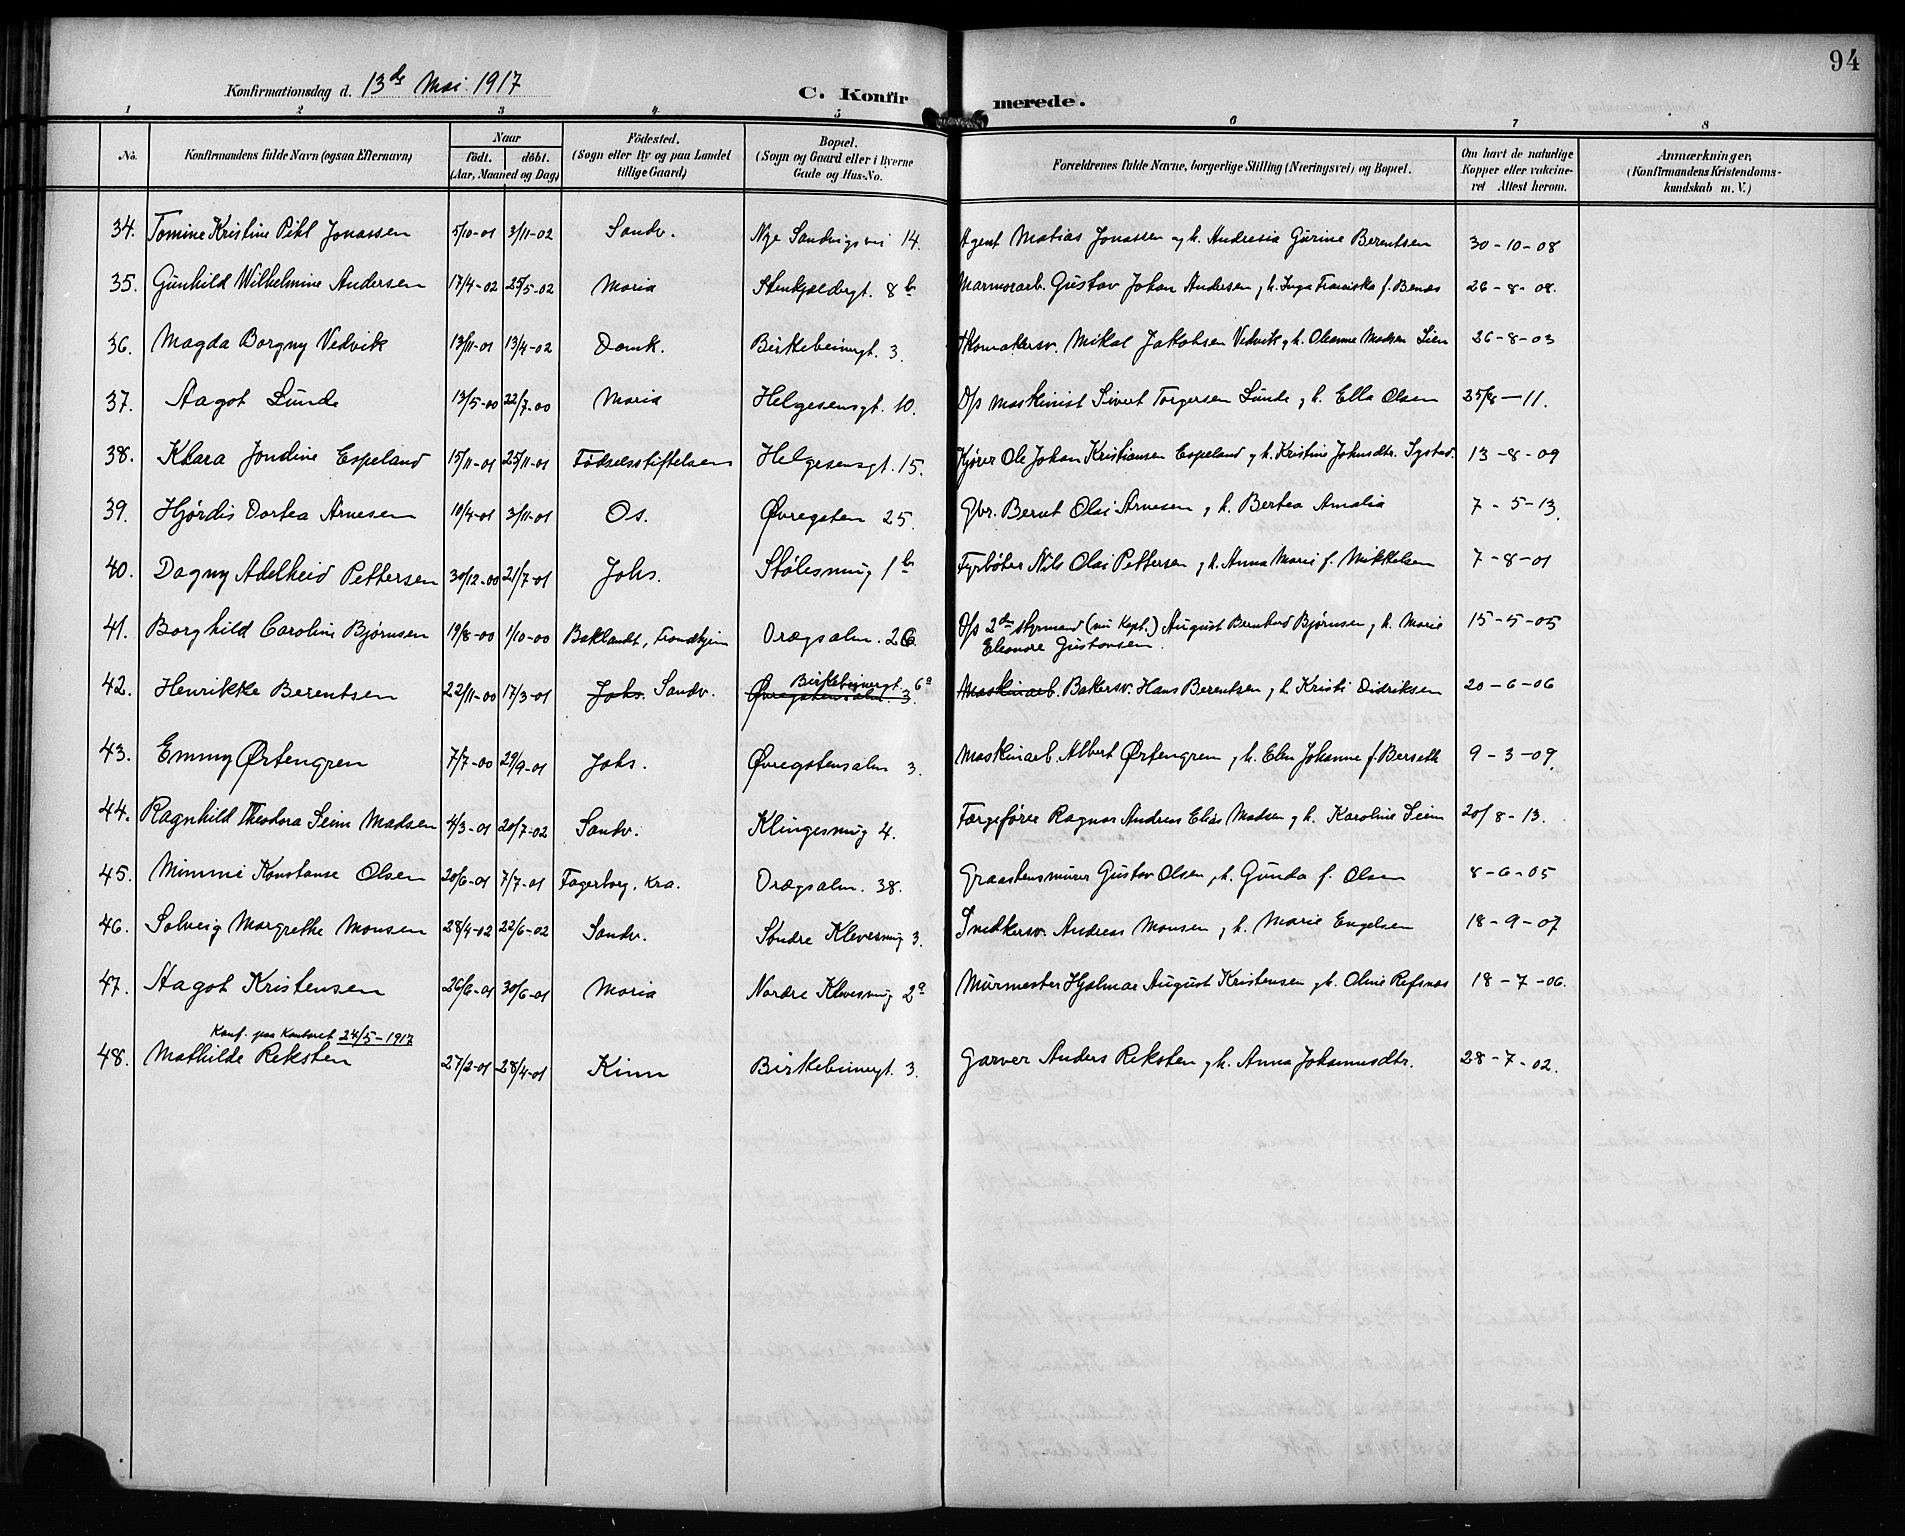 94
Konfirmationsdag d. 13de Mai 1917
C. Konfirmerede.
1 2 3 4 5 6 7 8
No. Konfirmandens fulde Navn (ogsaa Efternavn) Naar født. døbt. (Aar, Maaned og Dag) Fødested. (Sogn eller By og paa Landet tillige Gaard) Bopæl. (Sogn og Gaard eller i Byerne Gade og Hus-No. Forældrenes fulde Navne, borgerlige Stilling (Næringsvei) og Bopæl. Om havt de naturlige Kopper eller vakcineret Attest herom. Anmærkninger, (Konfirmandens Kristendomskundskab m. V.)
34. Tomine Kristine Pihl Jonassen 5/10-01 3/11-02 Sandv. Nye Sandvigsvei 14. Agent Matias Jonassen og h. Andresia Gurine Berentsen 30-10-08
35. Gunhild Wilhelmine Andersen 17/4-02 25/5-02 Maria Stenkjeldergt. 8b Marmorarb. Gustav Johan Andersen og h. Inga Franciska f. 26-8-08.
36. Magda Borgny Vedvik 13/11-01 13/4-02 Domk. Birkebeinergt. 3. Mikal Jakobsen Vedvik og h. Oleanne Madsen Lien 26-8-03
37. Aagot Lunde 13/5-00 22/7-00 Maria Helgesensgt. 10. D/s maskinist Sivert Torgersen Lunde og h. Ella Olsen 25/8-11.
38. Klara Jondine Espeland 15/11-01 25/11-01 Fødselsstiftelsen Helgesensgt. 15. Kjører Ole Johan Kristiansen Espeland og h. Kristine Johnsdtr. 13-8-09
39. Hjørdis Dortea Arnesen 10/4-01 3/11-01 Os. Øvregaten 25. Gbr. Bernt Olai Arnesen og h. Bertea Amalia 7-5-13.
40. Dagny Adelheid Pettersen 30/12-00 21/7-01 Johs. Stølesmug 1b Fyrbøter Nils Olai Pettersen og h. Anna Marie f. Mikkelsen 7-8-01
41. Borghild Caroline Bjørnsen 19/8-00 1/10-00 Baklandt, Trondhjem Drægsalm. 26. D/s 2den styrmand (nu Kapt.) August Bernhard Bjørnsen og h. Marie
Eleonore Gustavsen. 15-5-05
42. Henrikke Berentsen 22/11-00 17/3-01 Johs. Sandv. Birkebeinergt. 6a
Øvregatensalm. 3. Maskinarb. Bakersv. Hans Berentsen og h. Kristi Didriksen 20-6-06
43. Emmy Ørtengren 7/7-00 29/9-01 Johs. Øvregatensalm 3. Maskinarb. Albert Ørtengren og h. Elen Johanne f. Berseth 9-3-09.
44. Ragnhild Theodora Seim Madsen 4/3-01 20/7-02 Sandv. Klingesmug 4. Færgefører Ragnar Andreas Elias Madsen og h. Karoline Seim 20/8-13.
45. Mimmi Konstanse Olsen 20/6-01 7/7-01 Fagerborg, Kra. Drægsalm. 38. Graastensmurer Gustav Olsen og h. Gunda f. Olsen 8-6-05
46. Solveig Margrethe Monsen 28/4-02 22/6-02 Sandv. Søndre Klevesmug 3. Snedkersv. Andreas Monsen og h. Marie Engelsen 18-9-07
47. Aagot Kristensen 26/6-01 30/6-01 Maria Nordre Klevesmug 2a Murmester Hjalmar August Kristensen og h. Oline Refsnæs 18-7-06.
Konf. paa Kontoret 24/5-1917
48. Mathilde Reksten 27/2-01 28/4-01 Kinn Birkebeinergt. 3. Garver Anders Reksten og h. Anna Johannesdtr. 28-7-02.